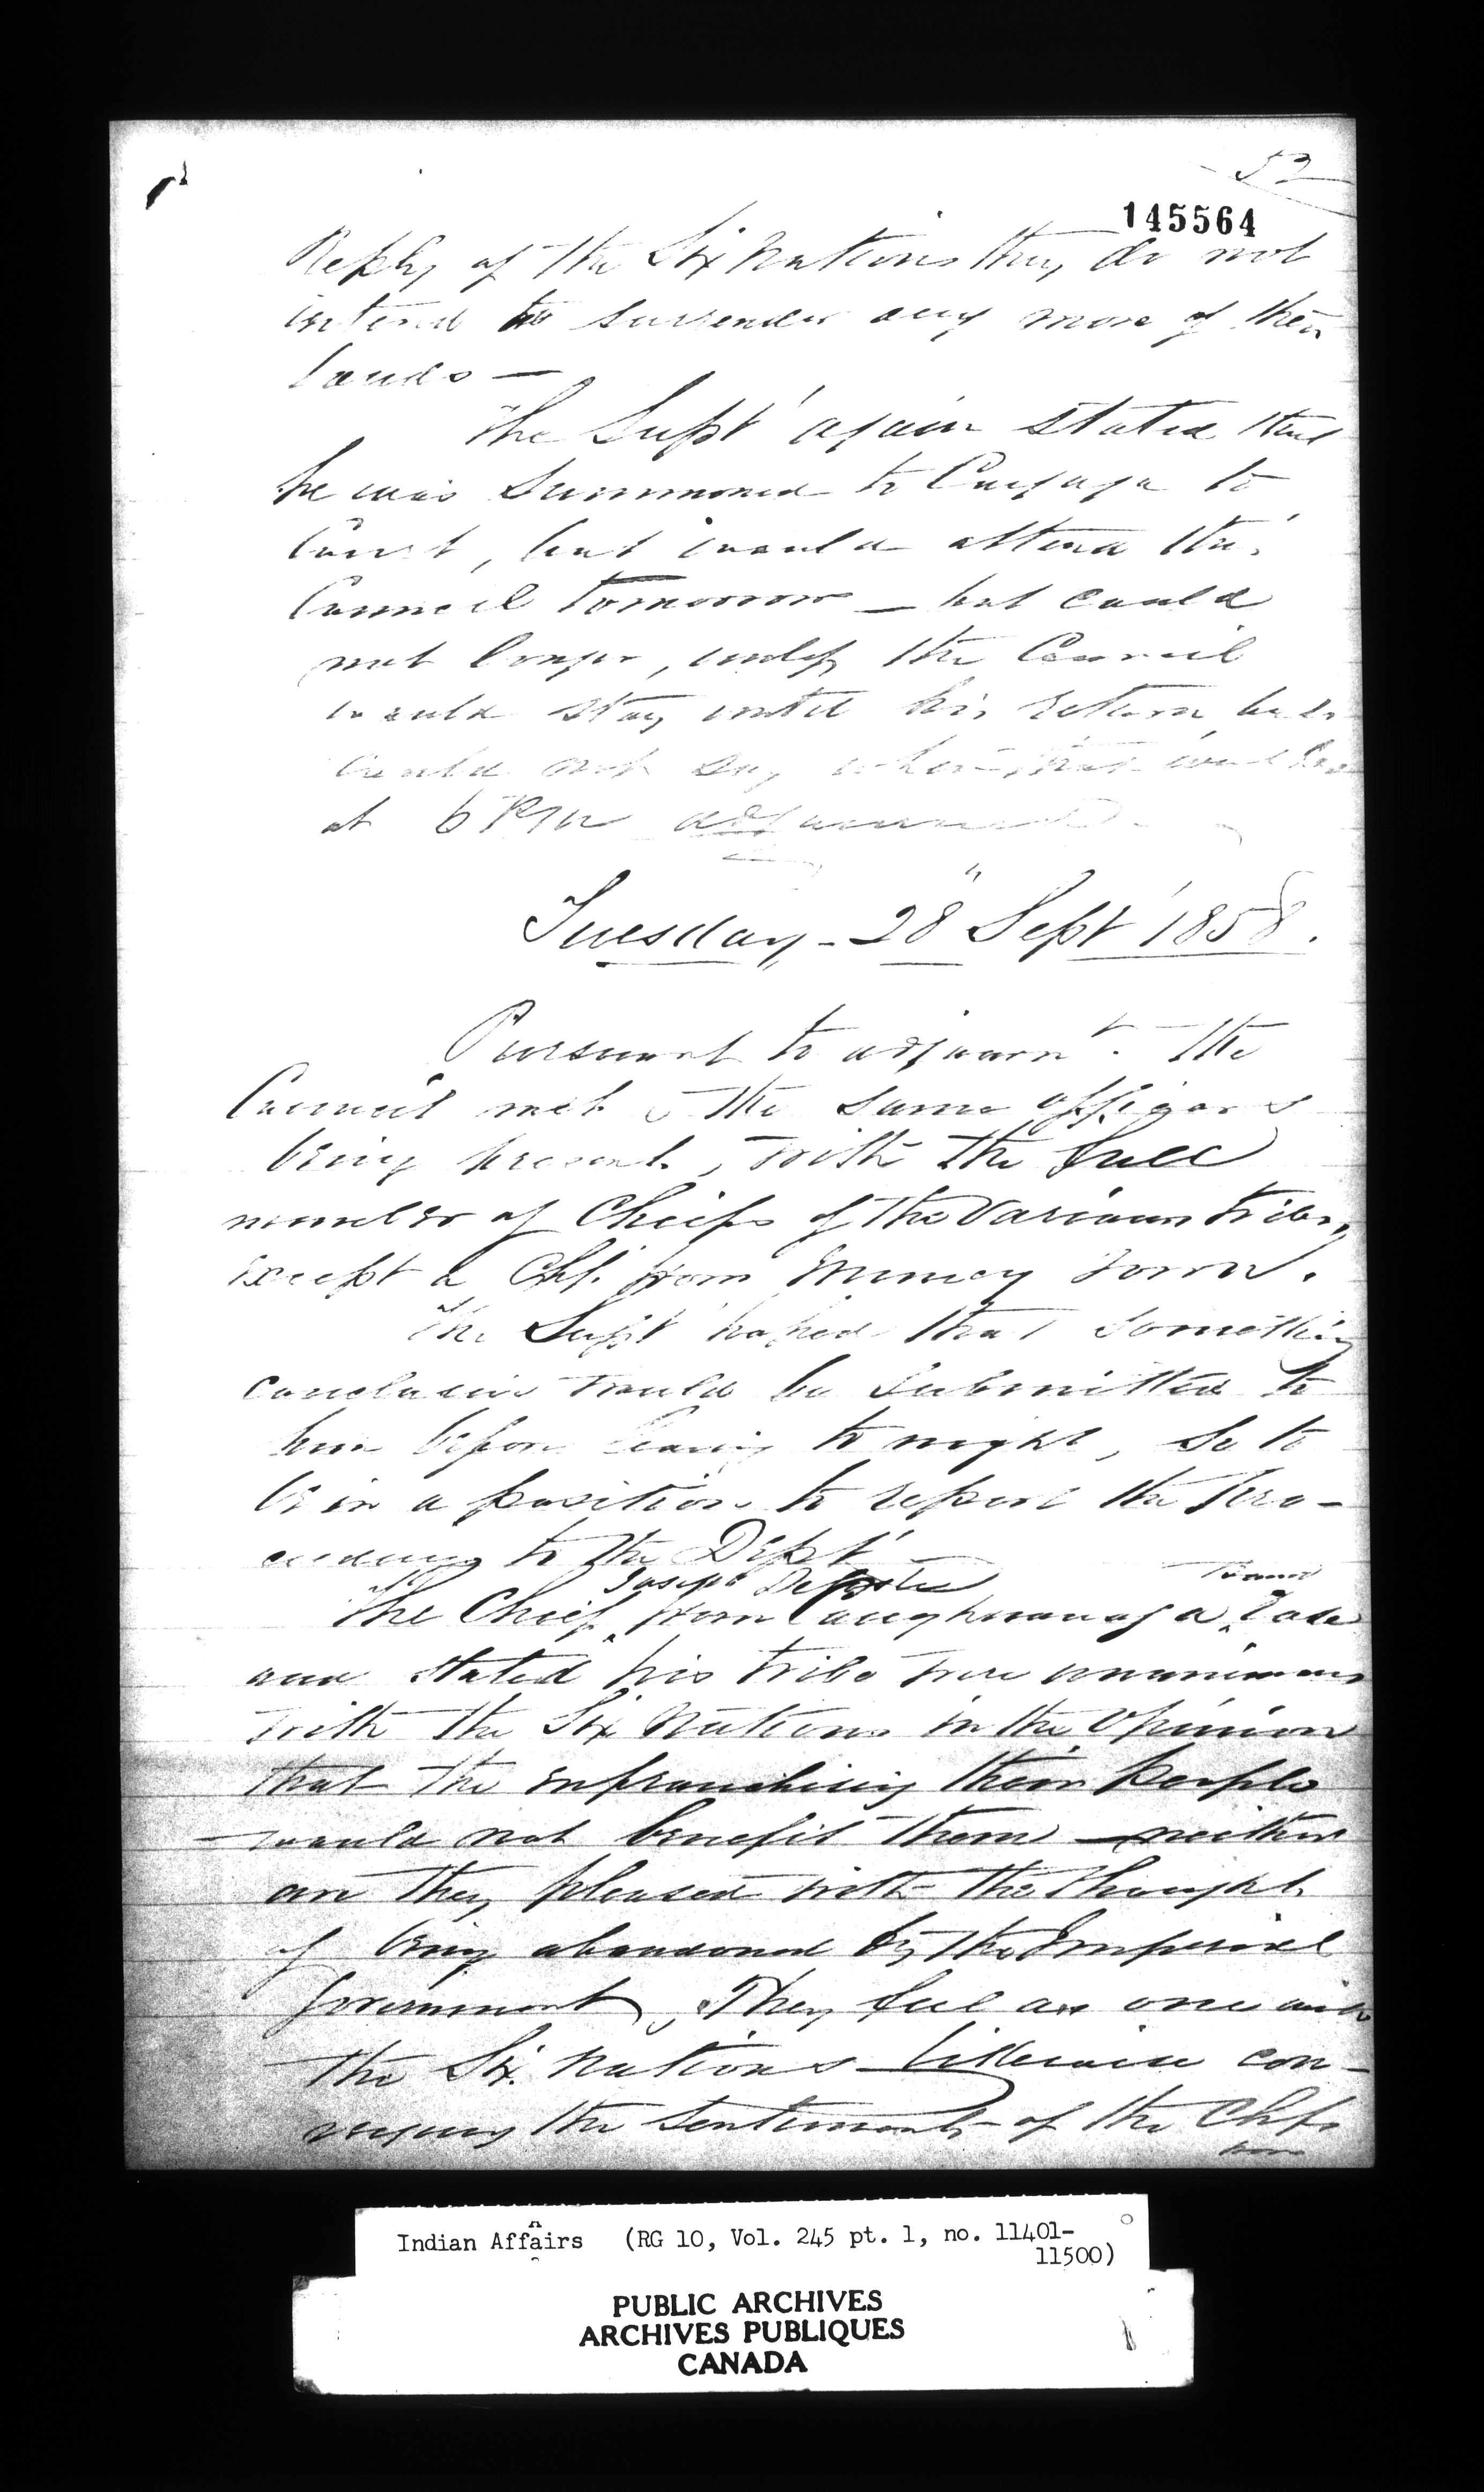 52
145564
Reply of the Six Nations they do not
intend to surrender any more of their
lands —
The Supt again stated that
he was summoned to Cayuga to
Court, but would attend the
Council tomorrow — but could
not longer, unless the Council
would stay until his return, but
could not say when that would be
at 6 PM adjourned
Tuesday - 28" Sept 1858.
Pursuant to adjournt. The
Council met & the same officers
being present, with the full
number of Chiefs of the various tribes,
except a Chf. from Muncey Town.
The Supt hoped that something
conclusive would be submitted to
him before leaving to night, so to
be in a position to report the pro-
ceedings to the Dept
Joseph
The Chief from Caughnawaga
and stated his tribe were unanimous
with the Six Nations in the opinion
that the enfranchising their people
would not benefit them — neither
are they pleased with the thought
of being abandoned by the Imperial
Government, They feel as one with
the Six Nations — likewise con-
veying the sentiments of the Chfs
Indian Affairs (RG 10, Vol. 245 pt. 1, no. 11401-
11500)
PUBLIC ARCHIVES
ARCHIVES PUBLIQUES
CANADA